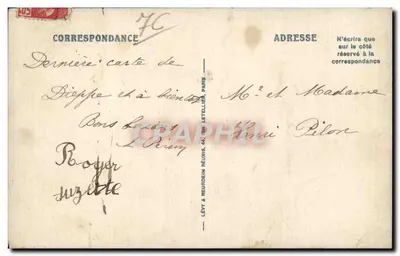 7C
CORRESPONDANCE
Dernière carte de
Dieppe et à bientôt
Bons baisers
Roger
Suzette
ADRESSE
N'écrire que
sur le côté
réservé à la
correspondance
Mr et Madame
Henri Pilon
LÉVY & NEURDEIN RÉUNIS, 44, RUE LETELLIER, PARIS